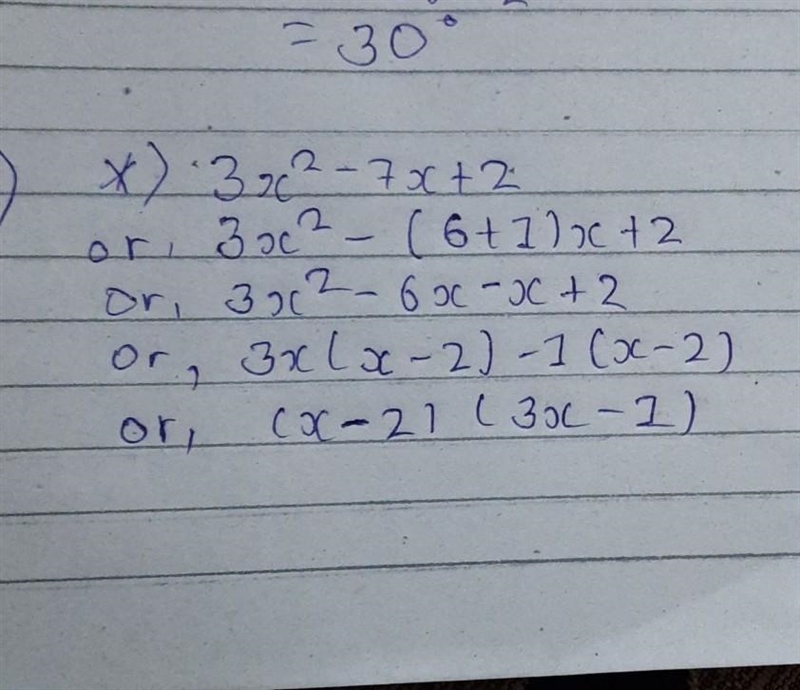 = 30°
x) 3x² - 7x + 2
or, 3x² - (6+1)x + 2
or, 3x² - 6x - x + 2
or, 3x(x - 2) - 1(x - 2)
or, (x - 2) (3x - 1)